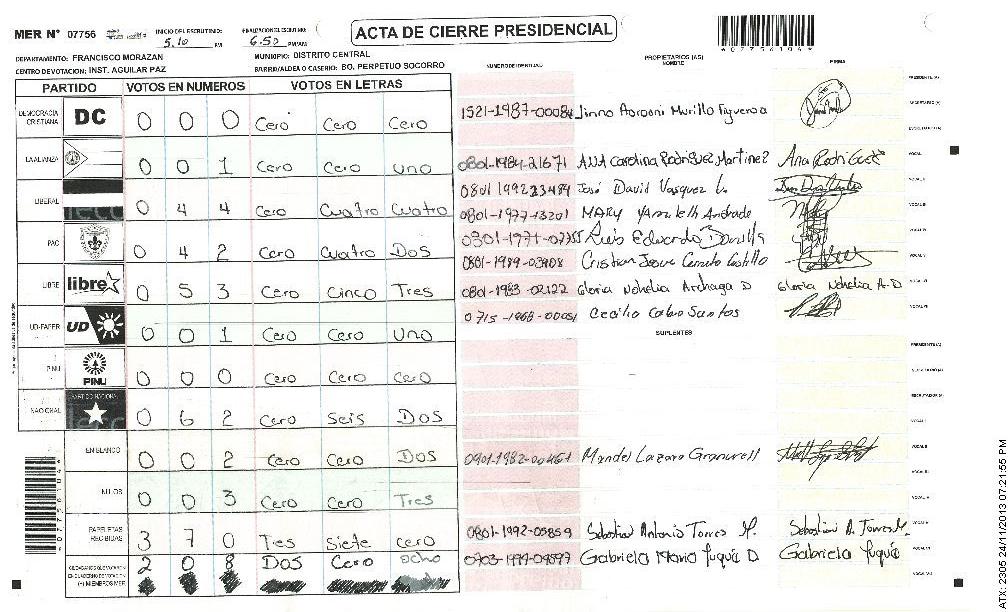 MER Nº 07756 INICIO DEL ESCRUTINIO: 5.10 PM FINALIZACION ESCRUTINIO: 6.50 PM/AM
ACTA DE CIERRE PRESIDENCIAL
DEPARTAMENTO: FRANCISCO MORAZAN MUNICIPIO: DISTRITO CENTRAL
CENTRO DE VOTACION: INST. AGUILAR PAZ BARRIO/ALDEA O CASERIO: BO. PERPETUO SOCORRO
PARTIDO VOTOS EN NUMEROS VOTOS EN LETRAS
DEMOCRACIA CRISTIANA DC 0 0 0 Cero Cero Cero
LA ALIANZA 0 0 1 Cero Cero uno
LIBERAL 0 4 4 Cero Cuatro Cuatro
PAC 0 4 2 Cero Cuatro Dos
LIBRE libre 0 5 3 Cero Cinco Tres
UD-FAPER UD 0 0 1 Cero Cero Uno
PINU PINU 0 0 0 Cero Cero Cero
NACIONAL PARTIDO NACIONAL 0 6 2 Cero Seis Dos
EN BLANCO 0 0 2 Cero Cero Dos
NULOS 0 0 3 Cero Cero Tres
PAPELETAS RECIBIDAS 3 7 0 Tres Siete cero
CIUDADANOS QUE VOTARON EN CUADERNO DE VOTACION (+) MIEMBROS MER 2 0 8 Dos Cero ocho
NUMERO DE IDENTIDAD PROPIETARIOS (AS) NOMBRE FIRMA
PRESIDENTE (A)
1521-1987-00084 Murillo Figueroa SECRETARIO (A)
ESCRUTADOR (A)
0801-1984-21671 ANA Carolina Rodriguez Martinez Ana Rodriguez VOCAL I
0801 1992 23484 José David Vasquez L. VOCAL II
0801-1977-13201 MARY Yamileth Andrade VOCAL III
0301-1971-07755 Luis Eduardo Bonilla VOCAL IV
0801-1989-03908 Cristian Josue Cerrato Castillo VOCAL V
0801-1983-02122 Gloria Nohelia Archaga D Gloria Nohelia A.D VOCAL VI
0715-1968-00051 Cecilio Santos VOCAL VII
SUPLENTES
PRESIDENTE (A)
SECRETARIO (A)
ESCRUTADOR (A)
VOCAL I
0901-1982-00461 Lazaro VOCAL II
VOCAL III
VOCAL IV
VOCAL V
0801-1992-05859 Sebastian Antonio Torres M. Sebastian A. Torres M.
0703-1999-04597 Gabriela Maria Yuquie D. Gabriela Yuquie VOCAL VII
*077561044*
ATX: 2305 24/11/2013 07:21:55 PM